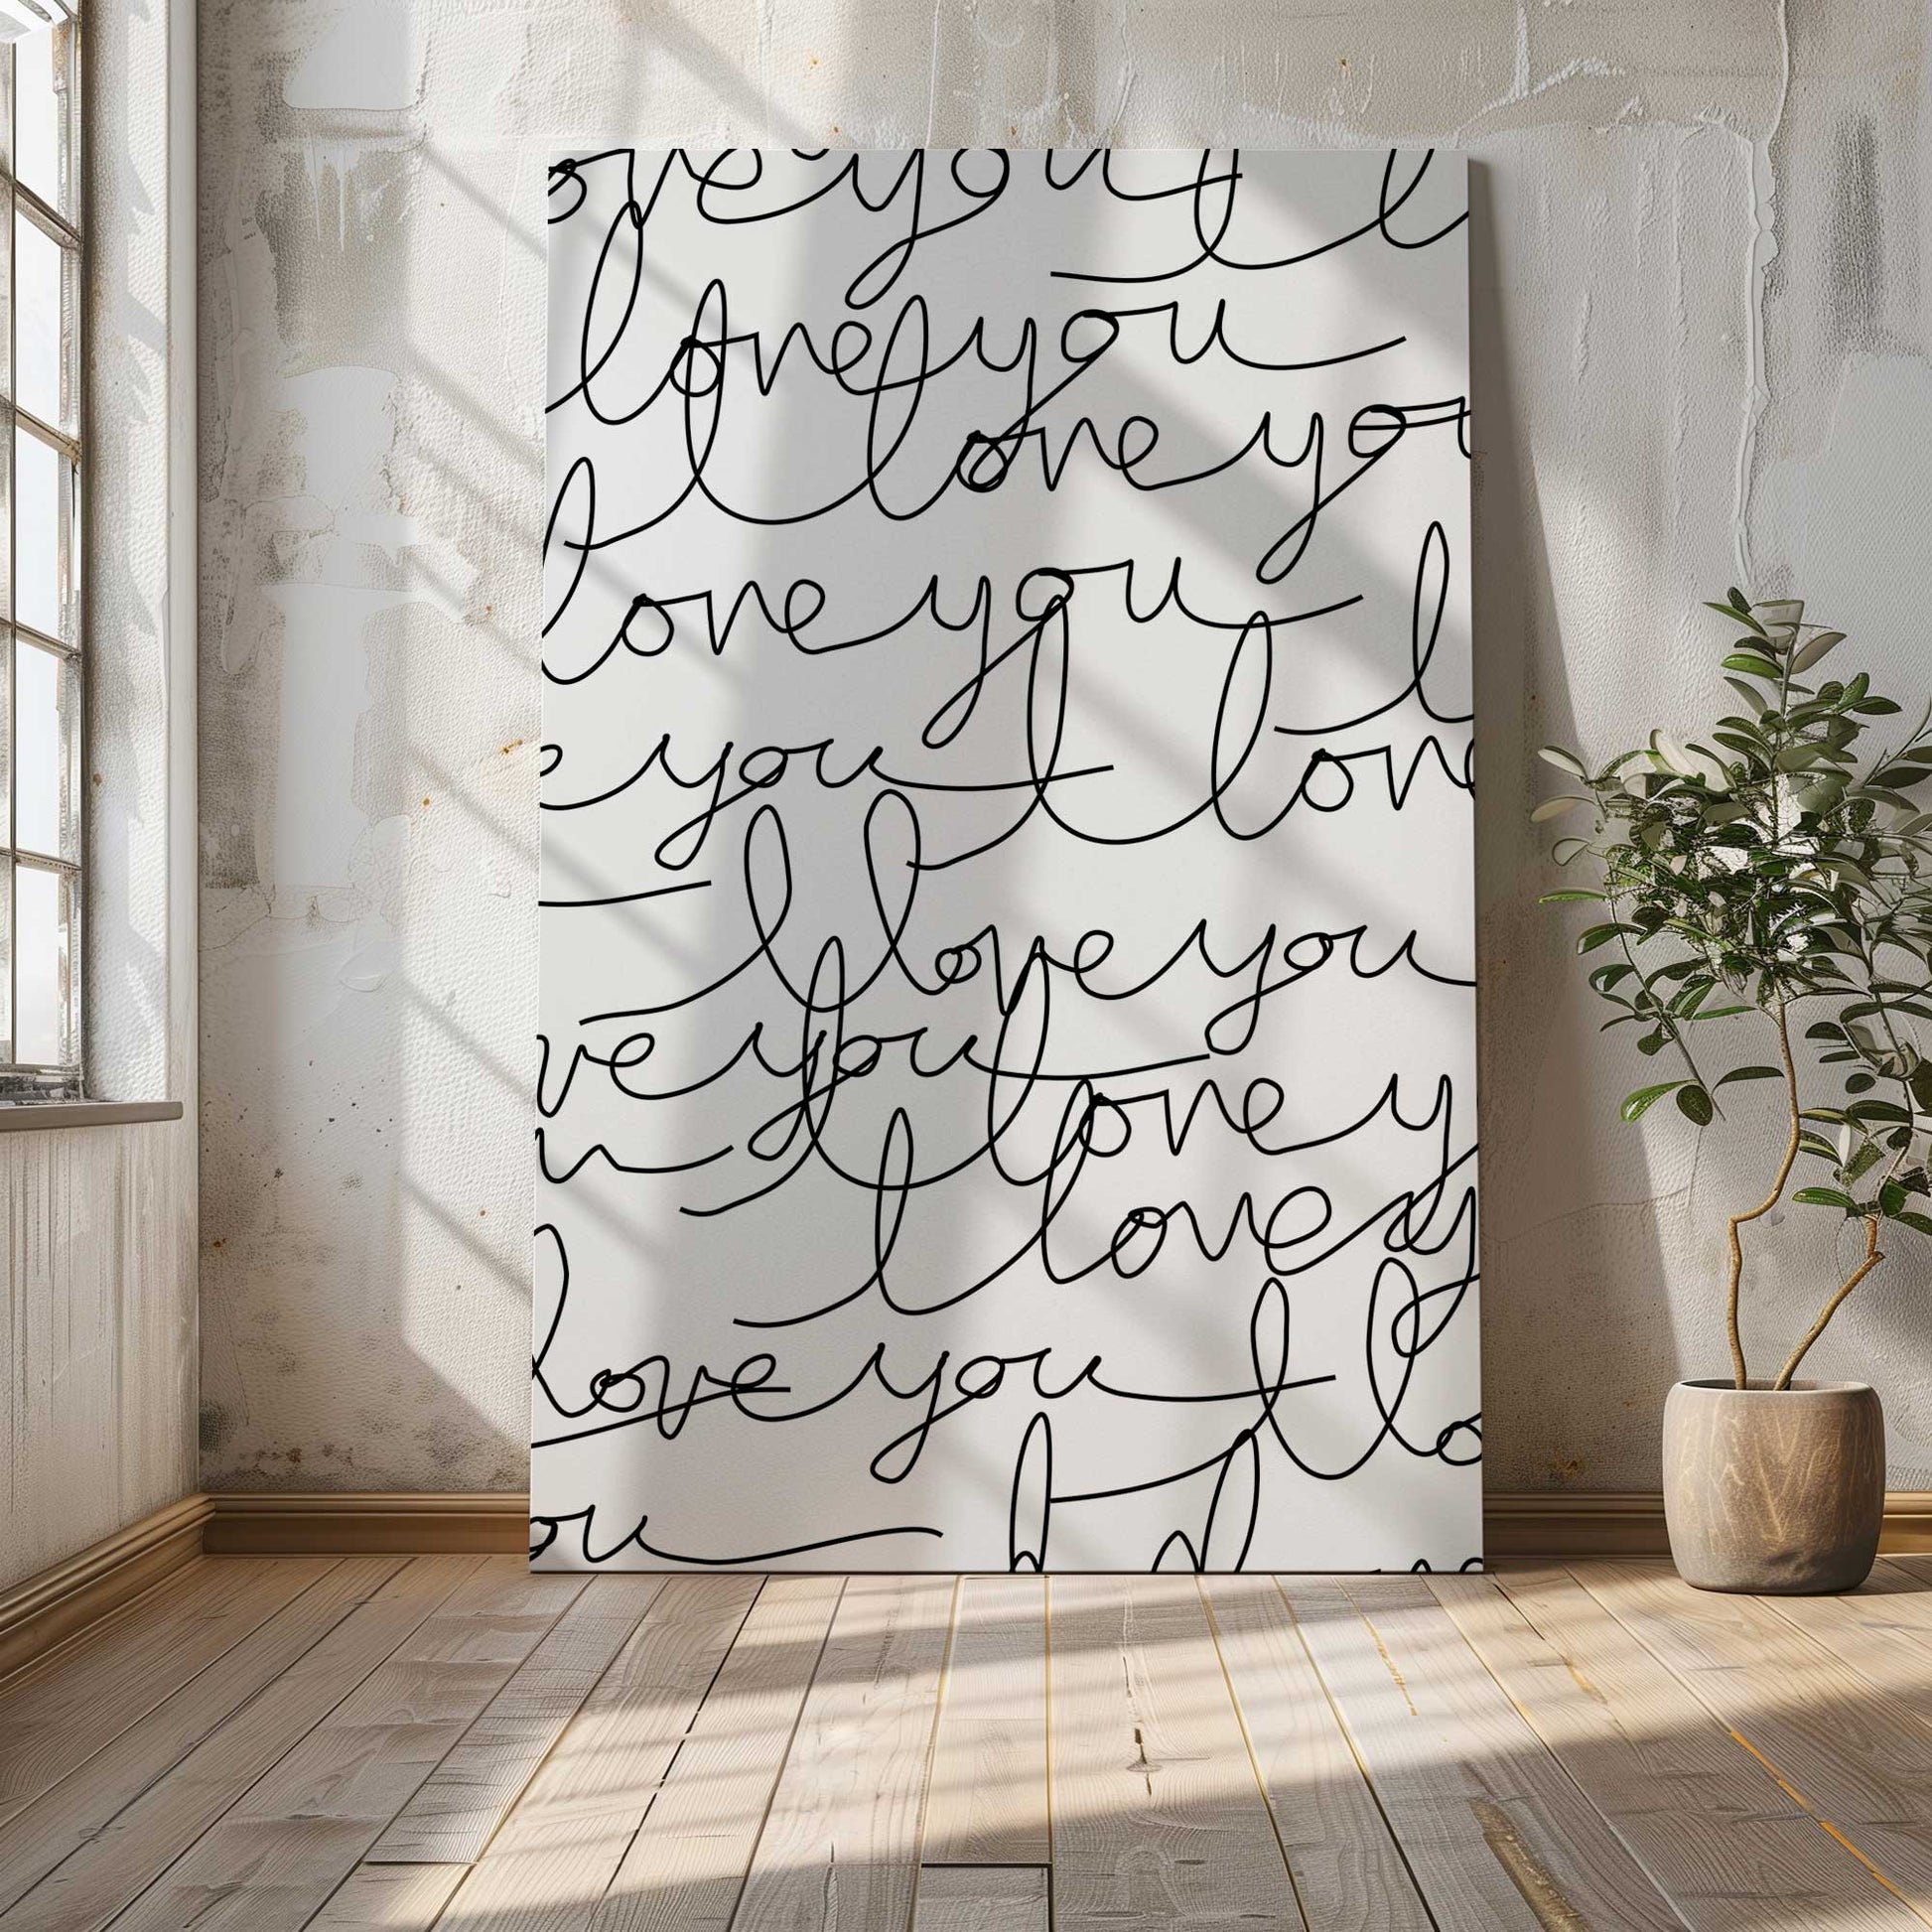 ove you I l
love you
I love you
love you
I lov
e you I love
I love you
ve you
I love y
u
I love y
love you I lo
ou